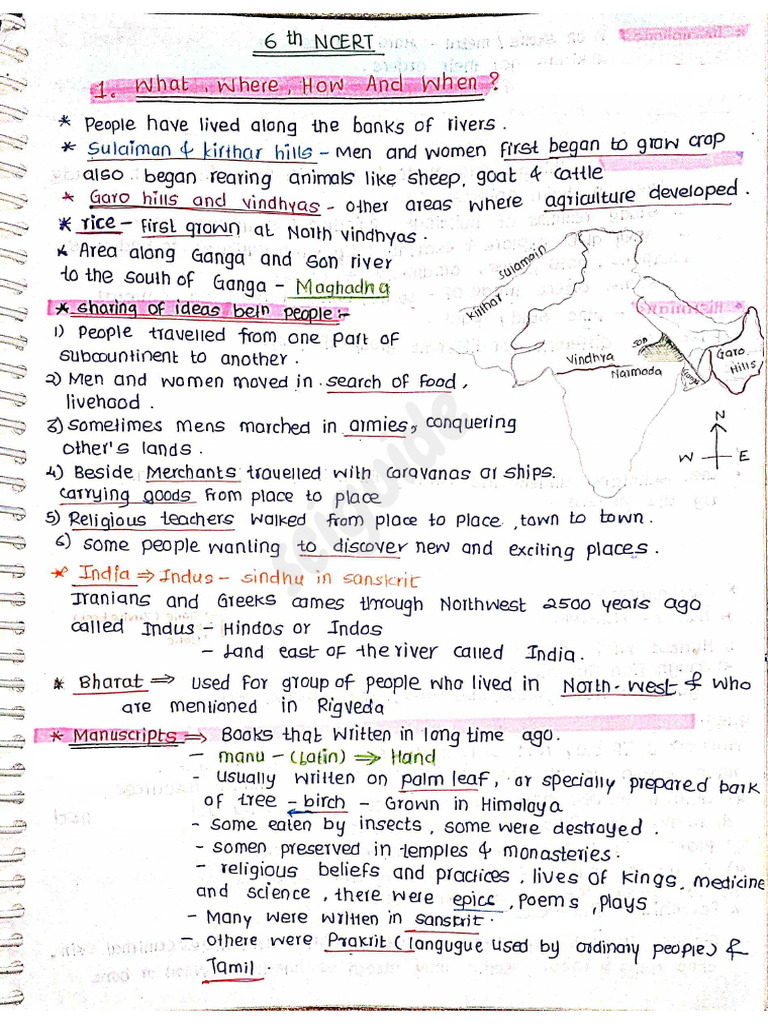 6th NCERT
1. What, Where, How And When?
* People have lived along the banks of rivers.
* Sulaiman & kirthar hills - Men and women first began to grow crop
also began rearing animals like sheep, goat & cattle
* Garo hills and vindhyas - other areas where agriculture developed.
* rice - first grown at North vindhyas.
* Area along Ganga and Son river
to the south of Ganga - Maghadha
* sharing of ideas betn people:-
1) People travelled from one part of
subcountinent to another.
2) Men and women moved in search of food,
livehood.
3) Sometimes mens marched in armies, conquering
other's lands.
4) Beside Merchants travelled with caravanas or ships.
carrying goods from place to place
5) Religious teachers walked from place to place, town to town.
6) some people wanting to discover new and exciting places.
kirthar
sulamain
son
Vindhya
Narmada
Ganga
Garo
Hills
N
W E
* India ⇒ Indus - sindhu in sanskrit
Iranians and Greeks cames through Northwest 2500 years ago
called Indus - Hindos or Indos
- Land east of the river called India.
* Bharat ⇒ used for group of people who lived in North-west & who
are mentioned in Rigveda
* Manuscripts ⇒ Books that written in long time ago.
- manu - (Latin) ⇒ Hand
- usually written on palm leaf, or specially prepared bark
of tree - birch - Grown in Himalaya
- some eaten by insects, some were destroyed.
- somen preserved in temples & monasteries.
- religious beliefs and practices, lives of kings, medicine
and science, there were epics, poems, plays
- Many were written in sanskrit.
- others were Prakrit (langugue used by ordinary people) &
Tamil.
seiguide